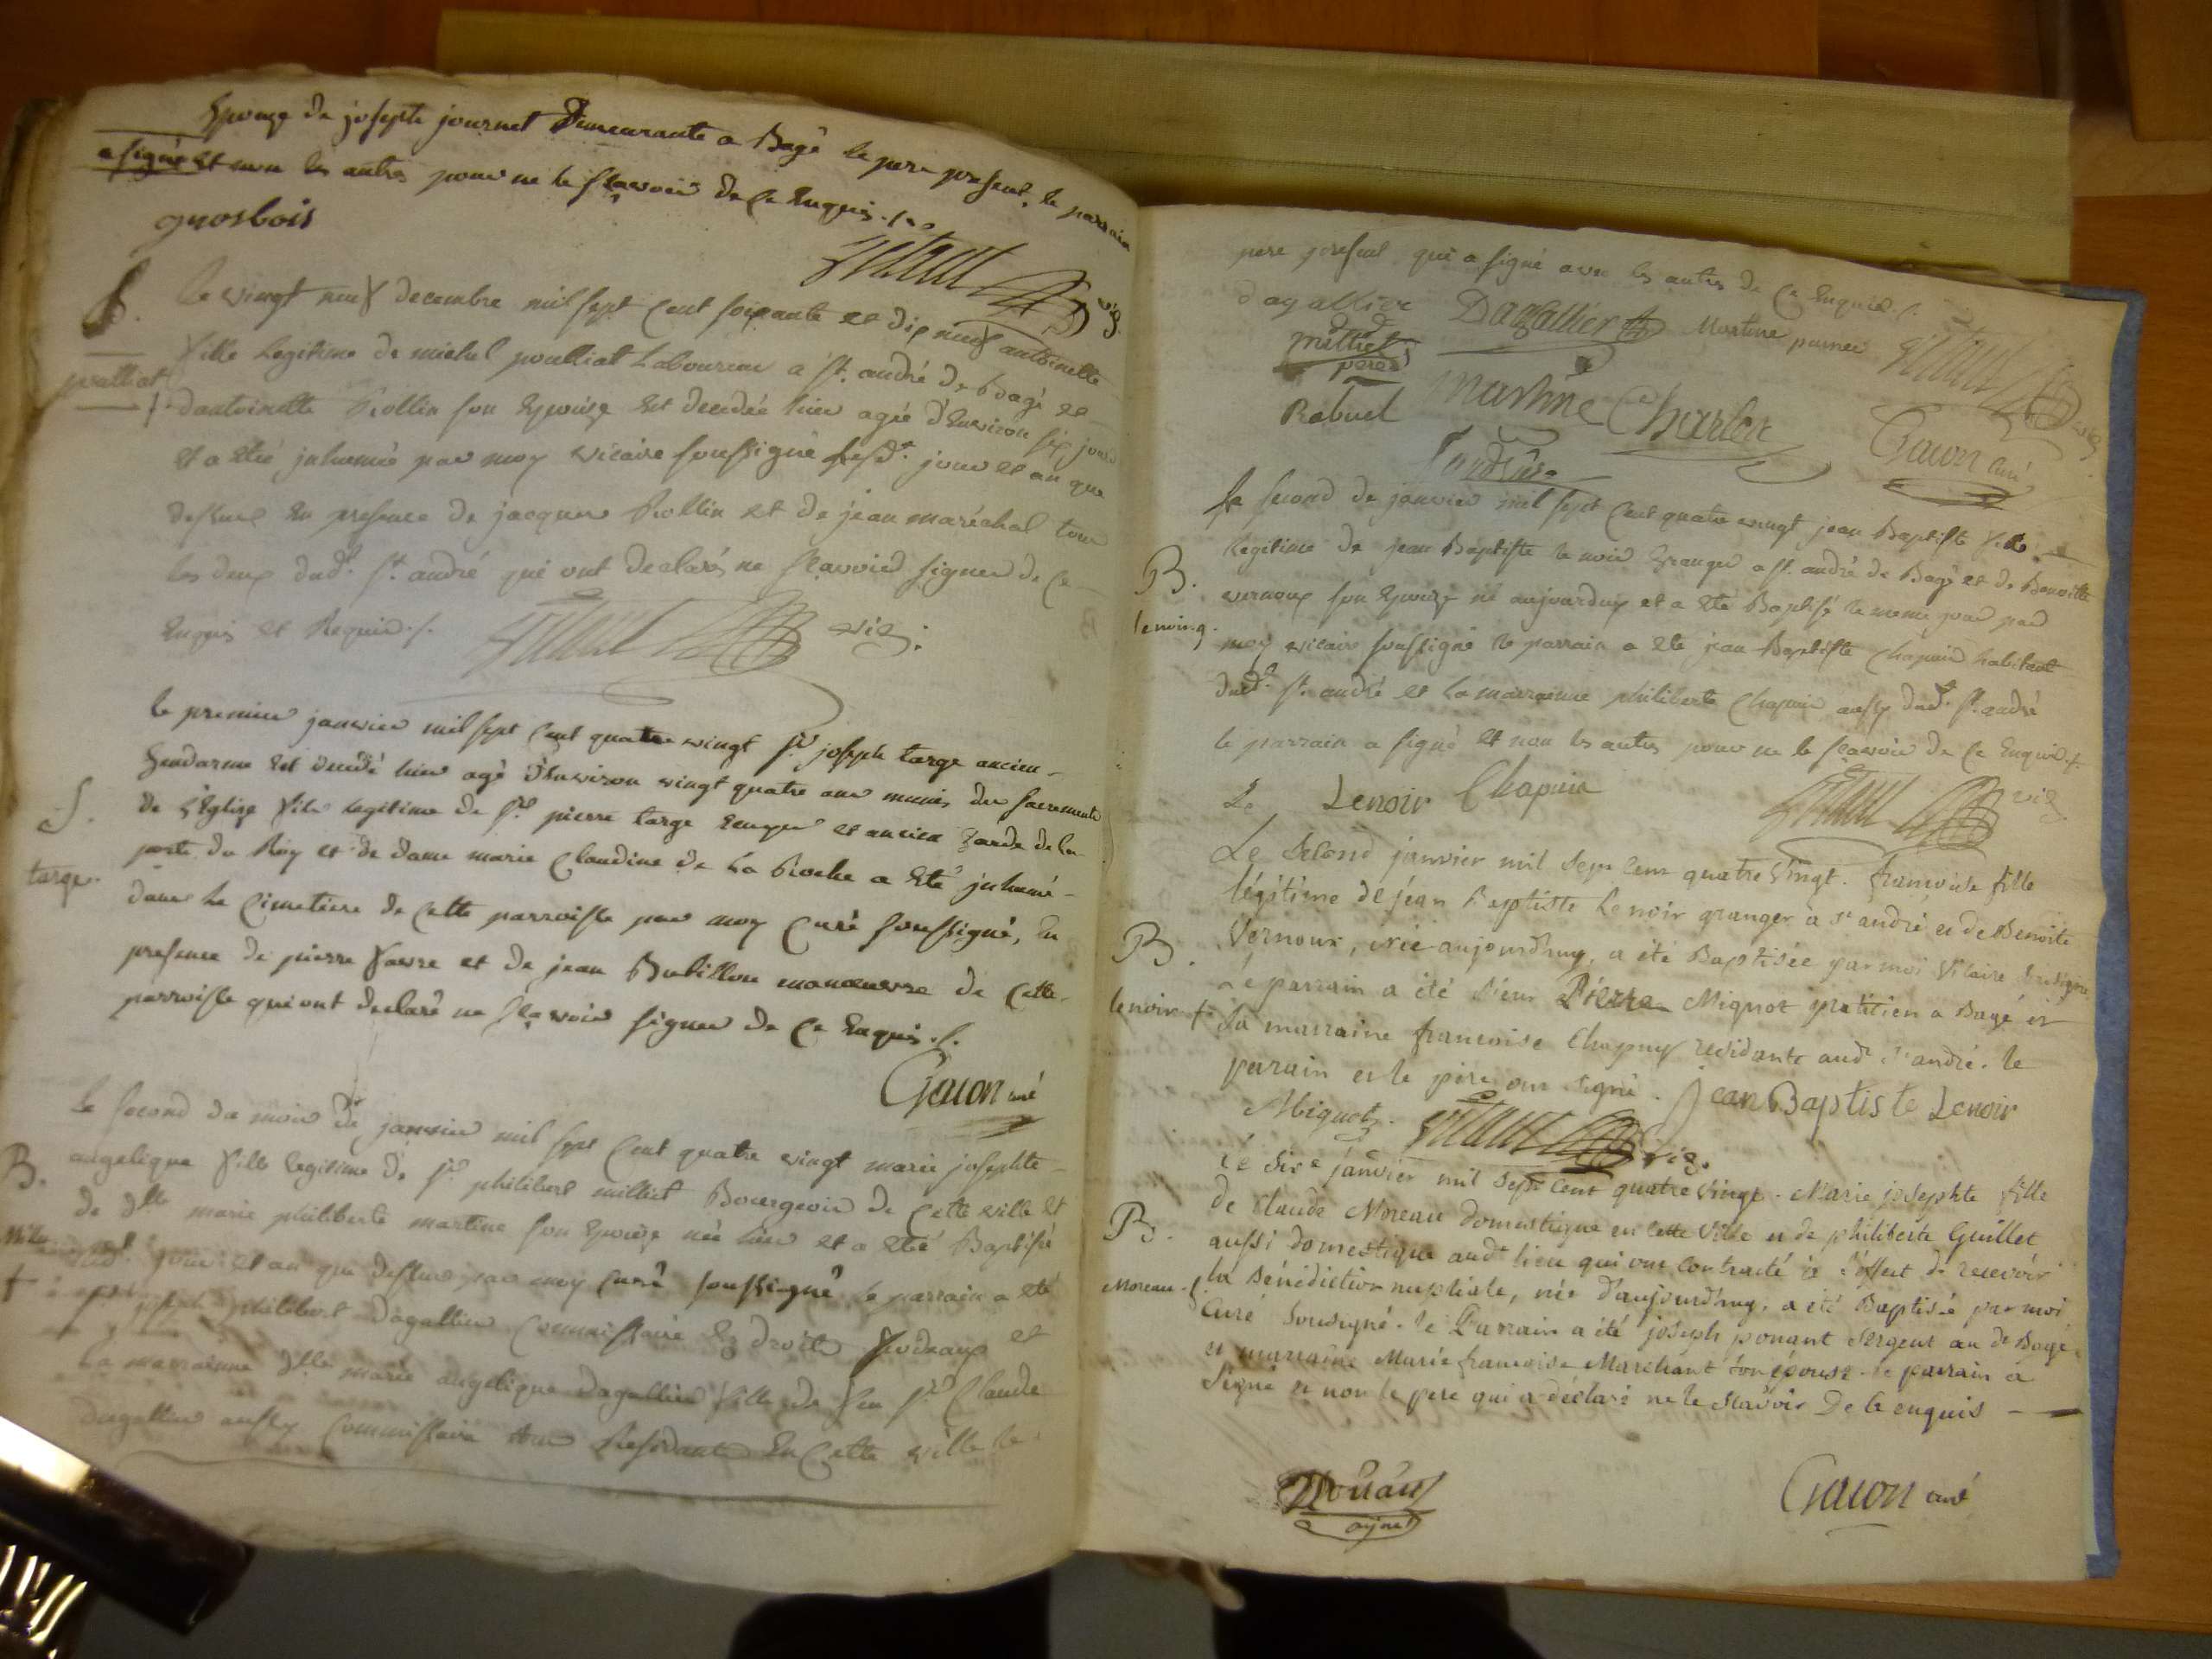 Epouze de josepte journet Demeurante a Bagé le pere present, le parrain
a signé et non les autres pour ne le sçavoir de ce Enquis ./.
grosbois
vic.
S.
poulliat f.
le vingt neuf decembre mil sept cent soixante et dix neuf antoinette
fille legitime de michel poulliat Laboureur a st. andré de bagé et
d'antoinette Rollin son Epouze est decedée hier agée d'Environ six jours
et a eté inhumée par moy vicaire soussigné jour et an que
dessus En presence de jacques Rollin et de jean maréchal tous
les deux dud. st. andré qui ont declarés ne sçavoir signer de ce
Enquis et Requis ./.
vic.
S.
targe.
le premier janvier mil sept cent quatre vingt sr. joseph targe ancien
gendarme est decedé hier agé d'Environ vingt quatre ans munis des sacrements
de l'Eglize fils legitime de sr. pierre targe Ecuyer et ancien garde de la
porte du Roy et de dame marie Claudine de La Roche a Eté inhumé
dans le Cimetiere de Cette parroisse par moy Curé soussigné, En
presence de pierre favre et de jean Bubillon manoeuvre de Cette
parroisse qui ont declaré ne sçavoir signer de ce Enquis ./.
Gacon curé
B.
le second du mois de janvier mil sept Cent quatre vingt marie josephte
angelique fille legitime de sr. philibert milliet Bourgeois de Cette ville et
de dlle marie philiberte martine son Epouze née hier et a eté Baptisée
jour et an que dessus par moy Curé soussigné le parrain a eté
joseph philibert Dagallier Commissaire Es droits feodaux et
la marrainne dlle marie angelique Dagallier fille de feu sr. Claude
Dagallier aussy Commissaire tous Residants En Cette ville le
pere present qui a signé avec les autres de Ce Enquis ./.
dagallier Dagallier Martine
milliet
pere
Rabuel martine Charlon
Gacon curé
B.
lenoir. g.
Le second de janvier mil sept Cent quatre vingt jean Baptiste fils
legitime de jean Baptiste le noir Granger a st. andré de Bagé et de Benoitte
vernoux son Epouze né aujourduy et a eté Baptisé le meme jour par
moy vicaire soussigné le parrain a eté jean Baptiste Chapuis habitant
dud. st. andré et La marrainne philiberte Chapuis aussy dud. st. andré
le parrain a signé et non les autres pour ne le sçavoir de Ce Enquis ./.
Le Lenoir Chapuis
vic.
B.
lenoir f.
Le second janvier mil sept cent quatre vingt. francoise fille
légitime de jéan Baptiste Lenoir granger à st andré et de Benoite
Vernoux, née aujourd'huy, a été Baptisée par moi Vicaire soussigné
Le parrain a été sieur Pierre Mignot pratitien a Bagé et
la marraine francoise Chapuy residante aud. st andré. le
parain et le père ont signé. Jean Baptiste Lenoir
Mignot.
vic.
B.
Moreau. f.
Le sixe janvier mil sept cent quatre vingt. Marie josephte fille
de Claude Moreau domestique en cette Ville et de philiberte Guillet
aussi domestique audt lieu qui ont contracté à l'effet de recevoir
la Bénédiction nuptiale, née d'aujourd'huy, a été Baptisée par moi
Curé Soussigné. le Parrain a été joseph ponant Sergent au de Bagé
et marraine Marie francoise Marchant son épouse. le parrain a
signé et non le pere qui a déclaré ne le scavoir De ce enquis
Gacon curé